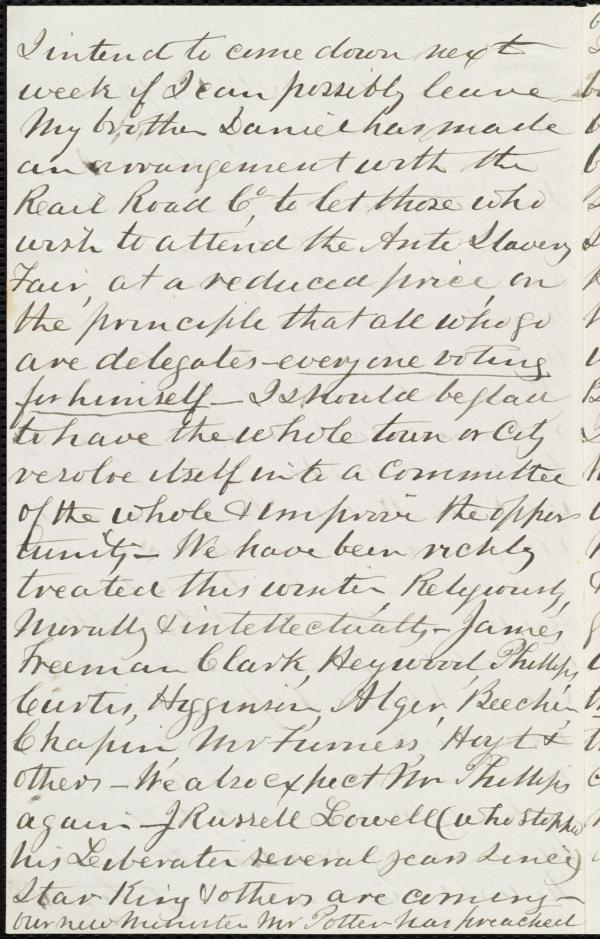 I intend to come down next
week if I can possibly leave
My brother Daniel has made
an arrangement with the
Rail Road Co, to let those who
wish to attend the Anti Slavery
Fair, at a reduced price, on
the principle that all who go
are delegates - everyone voting
for himself - I should be glad
to have the whole town or City
resolve itself into a Committee
of the whole & improve the oppor
tunity - We have been richly
treated this winter, Religiously,
Morally & intellectually - James
Freeman Clark, Heywood, Phillips,
Curtis, Higginson, Alger, Beecher,
Chapin Mr Furness, Hoyt &
others - We also expect Mr Phillips
again - J Russell Lowell (who stopped
his Liberator several years since)
Star King & others are coming -
our new Minister Mr Potter has preached